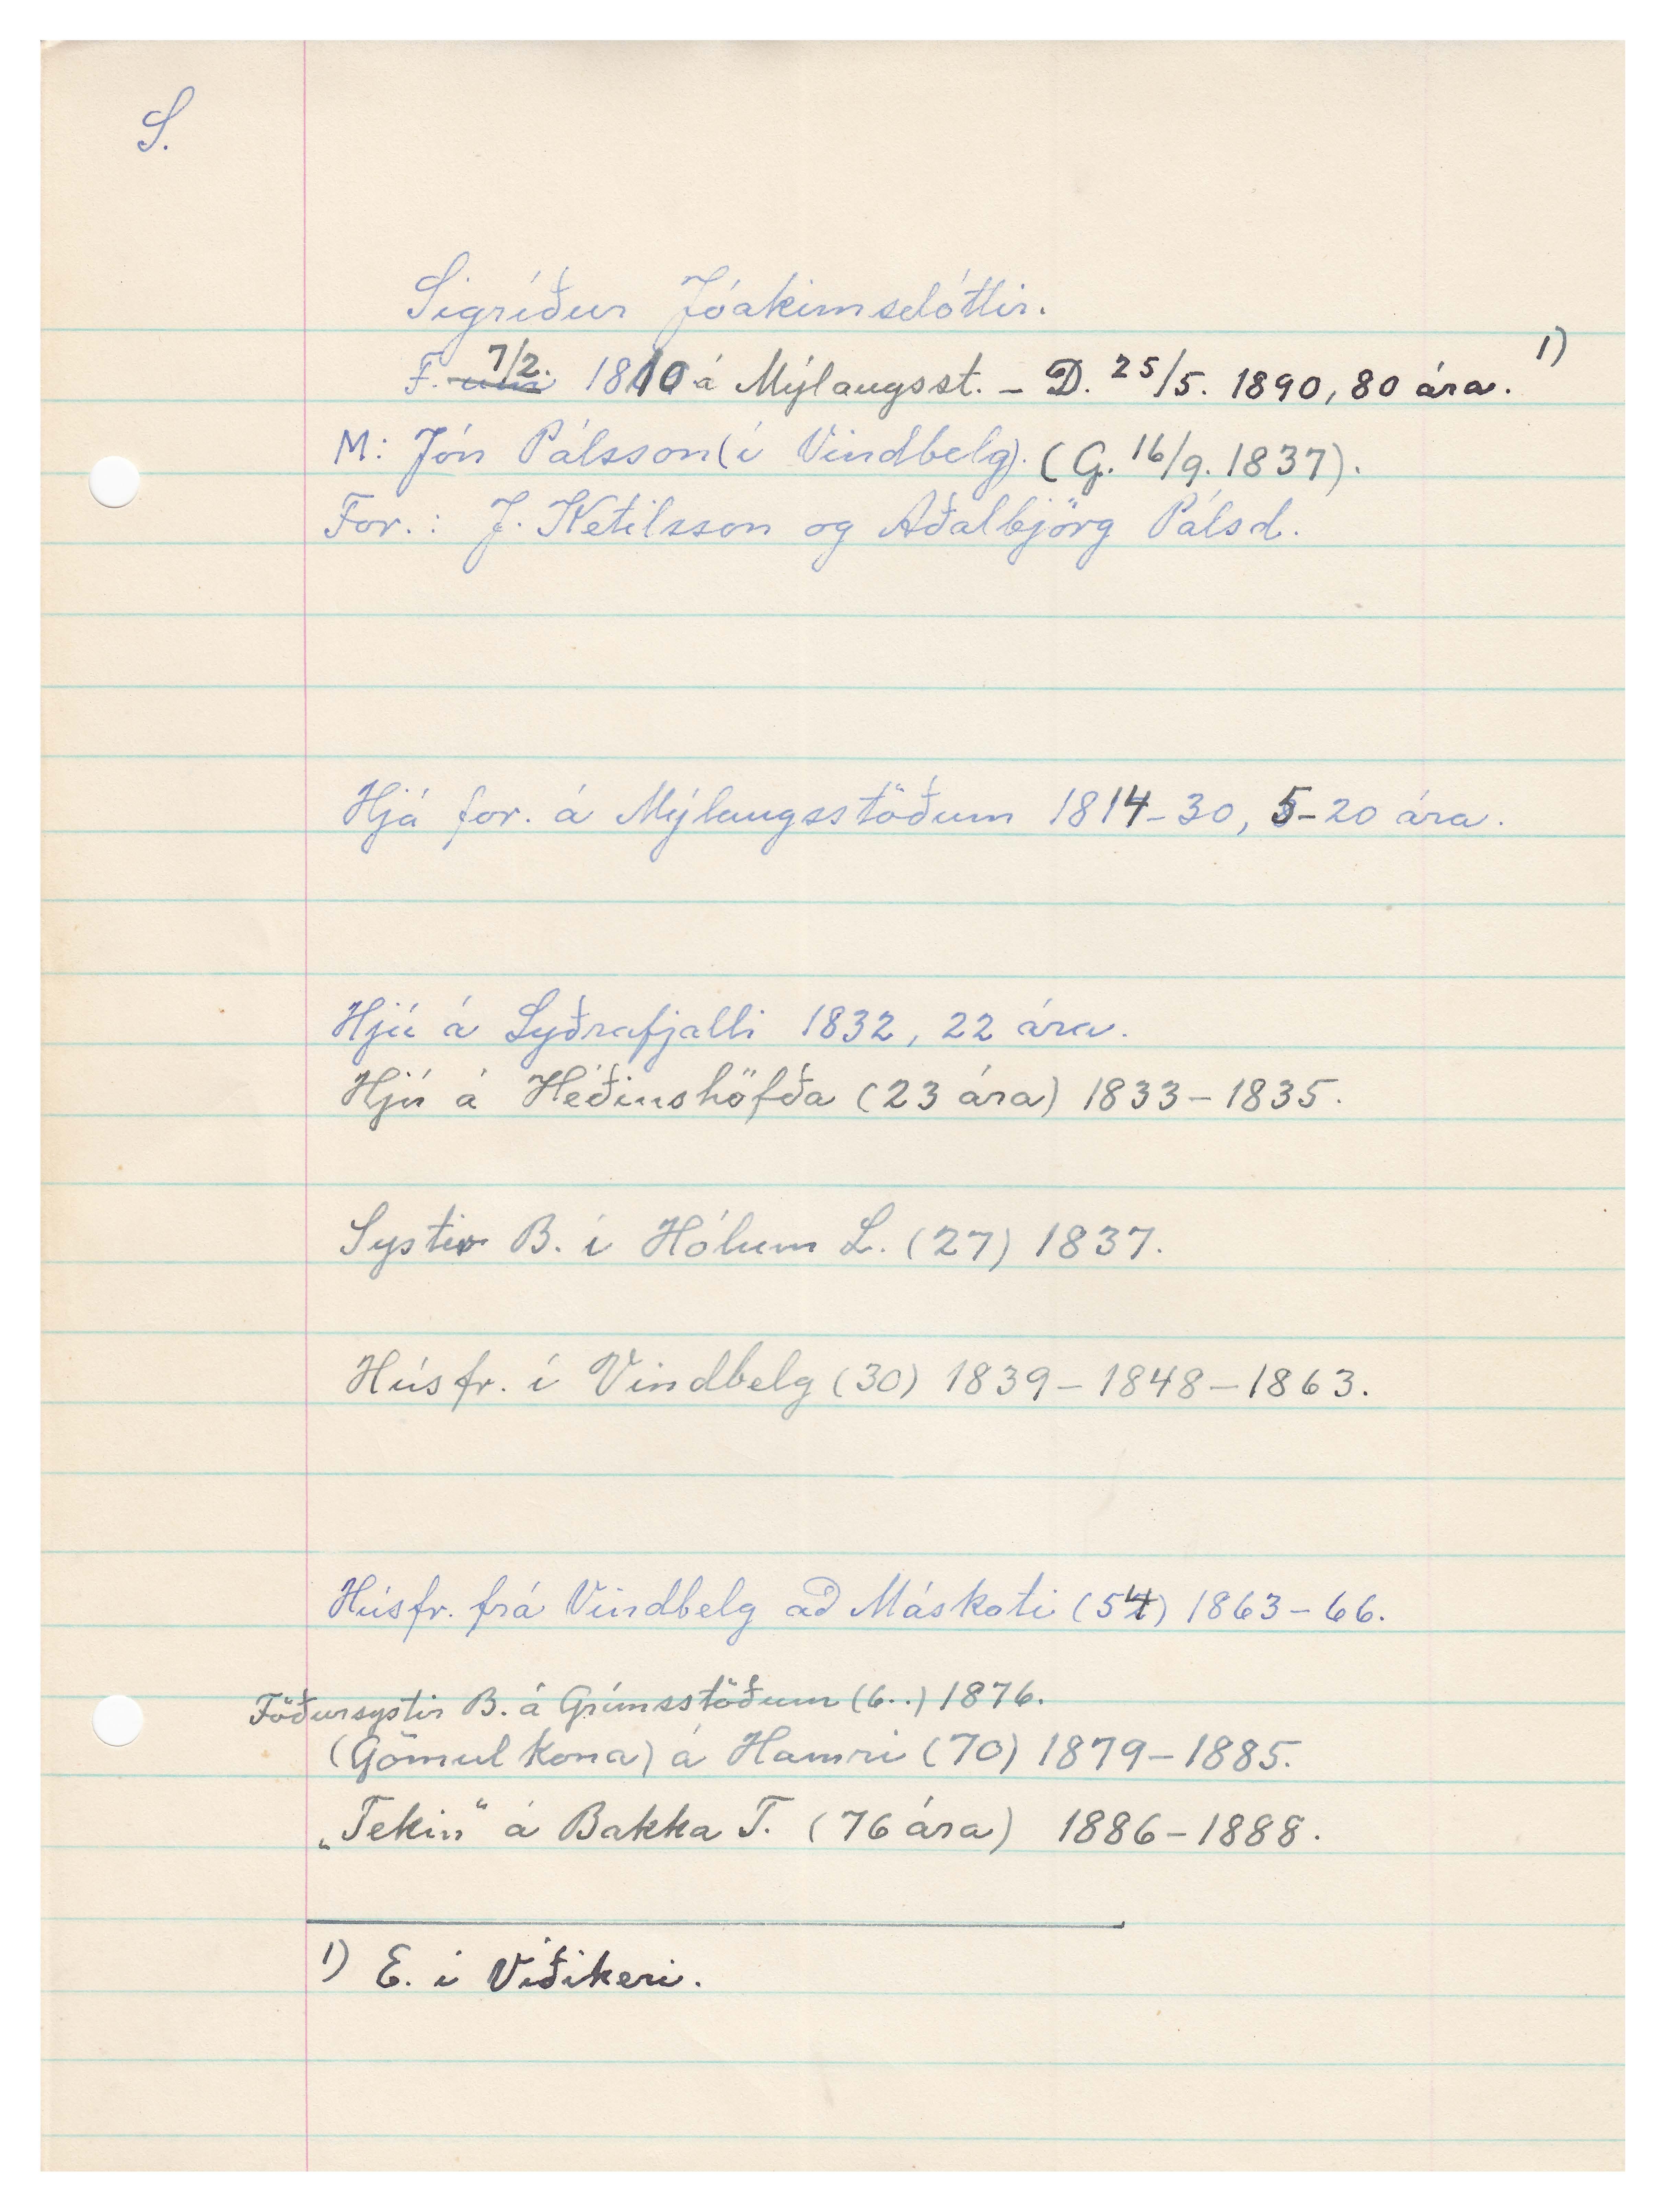 S.
Sigríður Jóakimsdóttir.
F. 7/2. 1810 á Mýlaugsst. – D. 25/5. 1890, 80 ára. 1)
M: Jón Pálsson (í Vindbelg). (G. 16/9. 1837).
For.: J. Ketilsson og Aðalbjörg Pálsd.
Hjá for. á Mýlaugsstöðum 1814–30, 5–20 ára.
Hjú á Syðrafjalli 1832, 22 ára.
Hjú á Héðinshöfða (23 ára) 1833–1835.
Systir B. í Hólum L. (27) 1837.
Húsfr. í Vindbelg (30) 1839–1848–1863.
Húsfr. frá Vindbelg að Máskoti (54) 1863–66.
Föðursystir B. á Grímsstöðum (6..) 1876.
(Gömul kona) á Hamri (70) 1879–1885.
„Tekin“ á Bakka T. (76 ára) 1886–1888.
1) E. í Víðikeri.